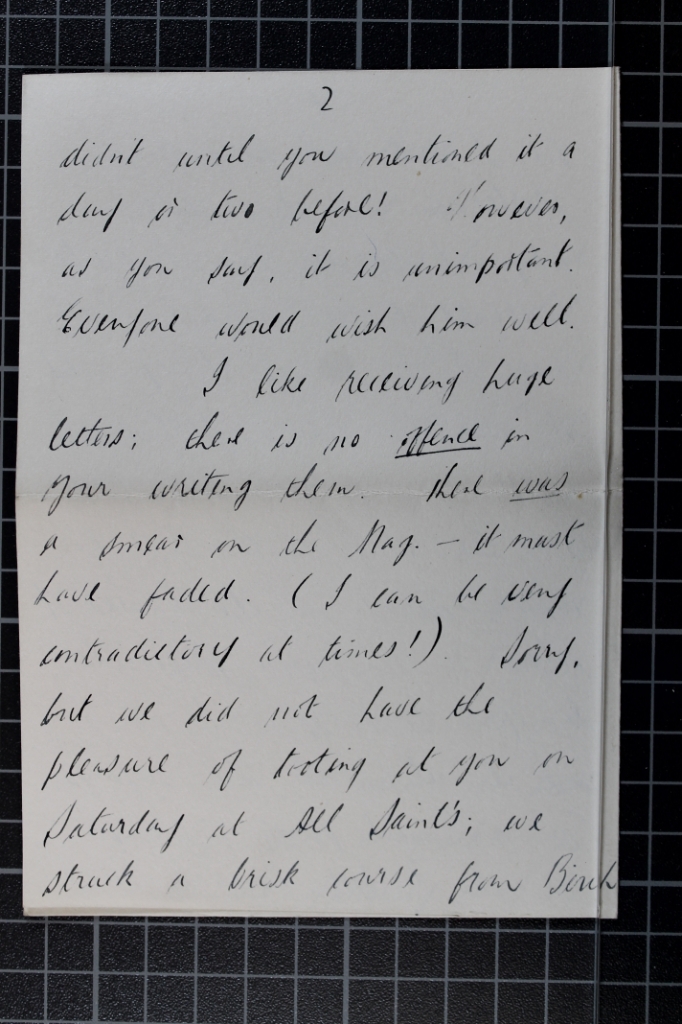 2
didn't until you mentioned it a
day or two before! However,
as you say, it is unimportant.
Everyone would wish him well.
I like receiving huge
letters; there is no offence in
your writing them. There was
a smear on the Mag. – it must
have faded. (I can be very
contradictory at times!) Sorry,
but we did not have the
pleasure of tooting at you on
Saturday at All Saint's; we
struck a brisk course from Birch